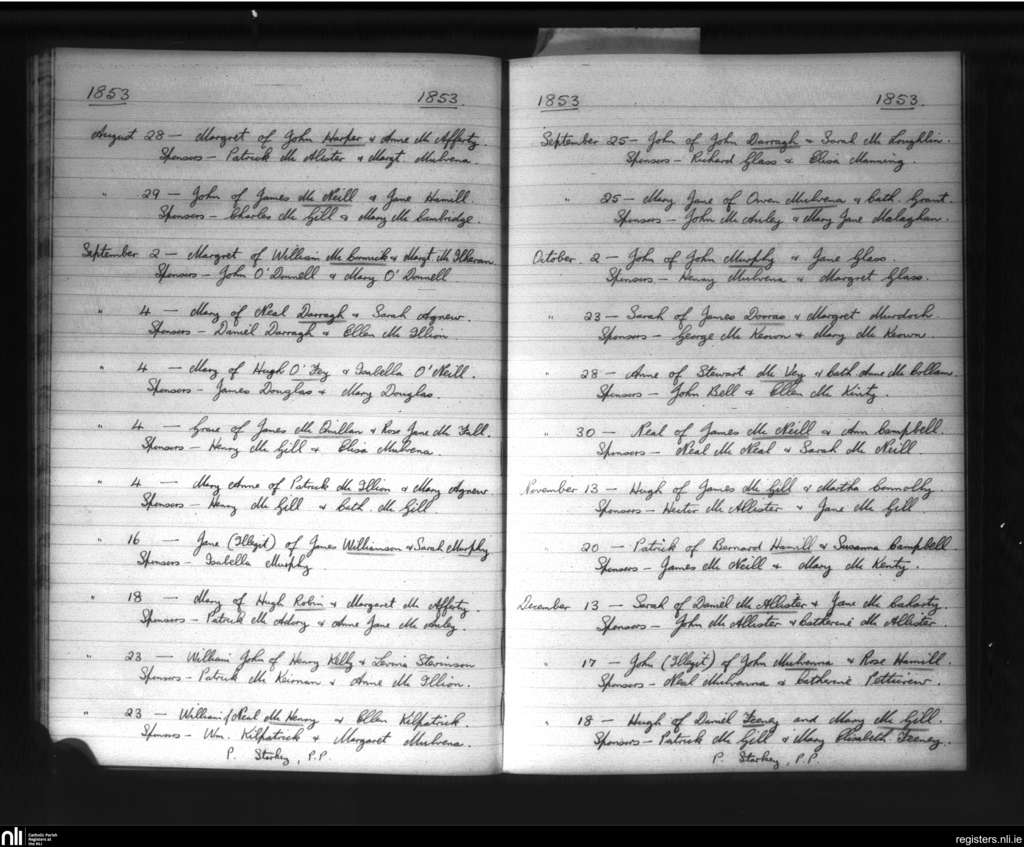 1853
1853.
August 28 — Margret of John Harper & Anne Mc Afferty.
Sponsors — Patrick Mc Alister & Margt. Mulvena.
" 29 — John of James Mc Neill & Jane Hamill.
Sponsors — Charles Mc Gill & Mary Mc Cambridge.
September 2 — Margret of William Mc Cormick & Margt Mc
Sponsors — John O'Donnell & Mary O'Donnell
" 4 — Mary of Neal Darragh & Sarah Agnew.
Sponsors — Daniel Darragh & Ellen Mc Illion.
" 4 — Mary of Hugh O'Fey & Isabella O'Neill.
Sponsors — James Douglas & Mary Douglas.
" 4 — Grace of James Mc Quillan & Rose Jane Mc Fall.
Sponsors — Henry Mc Gill & Elisa Mulvena.
" 4 — Mary Anne of Patrick Mc Illion & Mary Agnew.
Sponsors — Henry Mc Gill & Cath. Mc Gill.
" 16 — Jane (Illegit) of James Williamson & Sarah Murphy
Sponsors — Isabella Murphy.
" 18 — Mary of Hugh Robin & Margaret Mc Afferty.
Sponsors — Patrick Mc Adory & Anne Jane Mc Auley.
" 23 — William John of Henry Kelly & Levinia Stevinson
Sponsors — Patrick Mc Keirnan & Anne Mc Illion.
" 23 — William of Neal Mc Henry & Ellen Kilpatrick.
Sponsors — Wm. Kilpatrick & Margaret Mulvena.
P. Starkey, P.P.
1853
1853.
September 25 — John of John Darragh & Sarah Mc Loughlin.
Sponsors — Richard Glass & Elisa Manning.
" 25 — Mary Jane of Owen Mulvena & Cath. Grant.
Sponsors — John Mc Auley & Mary Jane Malaghan.
October. 2 — John of John Murphy & Jane Glass.
Sponsors — Henry Mulvena & Margret Glass.
" 23 — Sarah of James Dorras & Margret Murdoch.
Sponsors — George Mc Keown & Mary Mc Keown.
" 28 — Anne of Stewart Mc Vey & Cath. Anne Mc Collam.
Sponsors — John Bell & Ellen Mc Kinty.
" 30 — Neal of James Mc Neill & Ann Campbell.
Sponsors — Neal Mc Neal & Sarah Mc Neill
November 13 — Hugh of James Mc Gill & Martha Connolly.
Sponsors — Hector Mc Allister & Jane Mc Gill.
" 20 — Patrick of Bernard Hamill & Susanna Campbell.
Sponsors — James Mc Neill & Mary Mc Kenty.
December 13 — Sarah of Daniel Mc Allister & Jane Mc Caharty.
Sponsors — John Mc Allister & Catherine Mc Allister.
" 17 — John (Illegit) of John Mulvenna & Rose Hamill.
Sponsors — Neal Mulvenna & Catherine Petticrew.
" 18 — Hugh of Daniel Feeney and Mary Mc Gill.
Sponsors — Patrick Mc Gill & Mary Elisabeth Feeney.
P. Starkey, P.P.
nli
Catholic Parish
Registers at
the NLI
registers.nli.ie